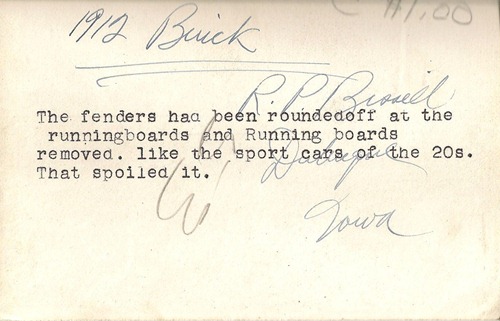 $1.00
1912 Buick
R. P. Bissell
The fenders had been roundedoff at the
runningboards and Running boards
removed. like the sport cars of the 20s.
That spoiled it.
Dubuque
Iowa